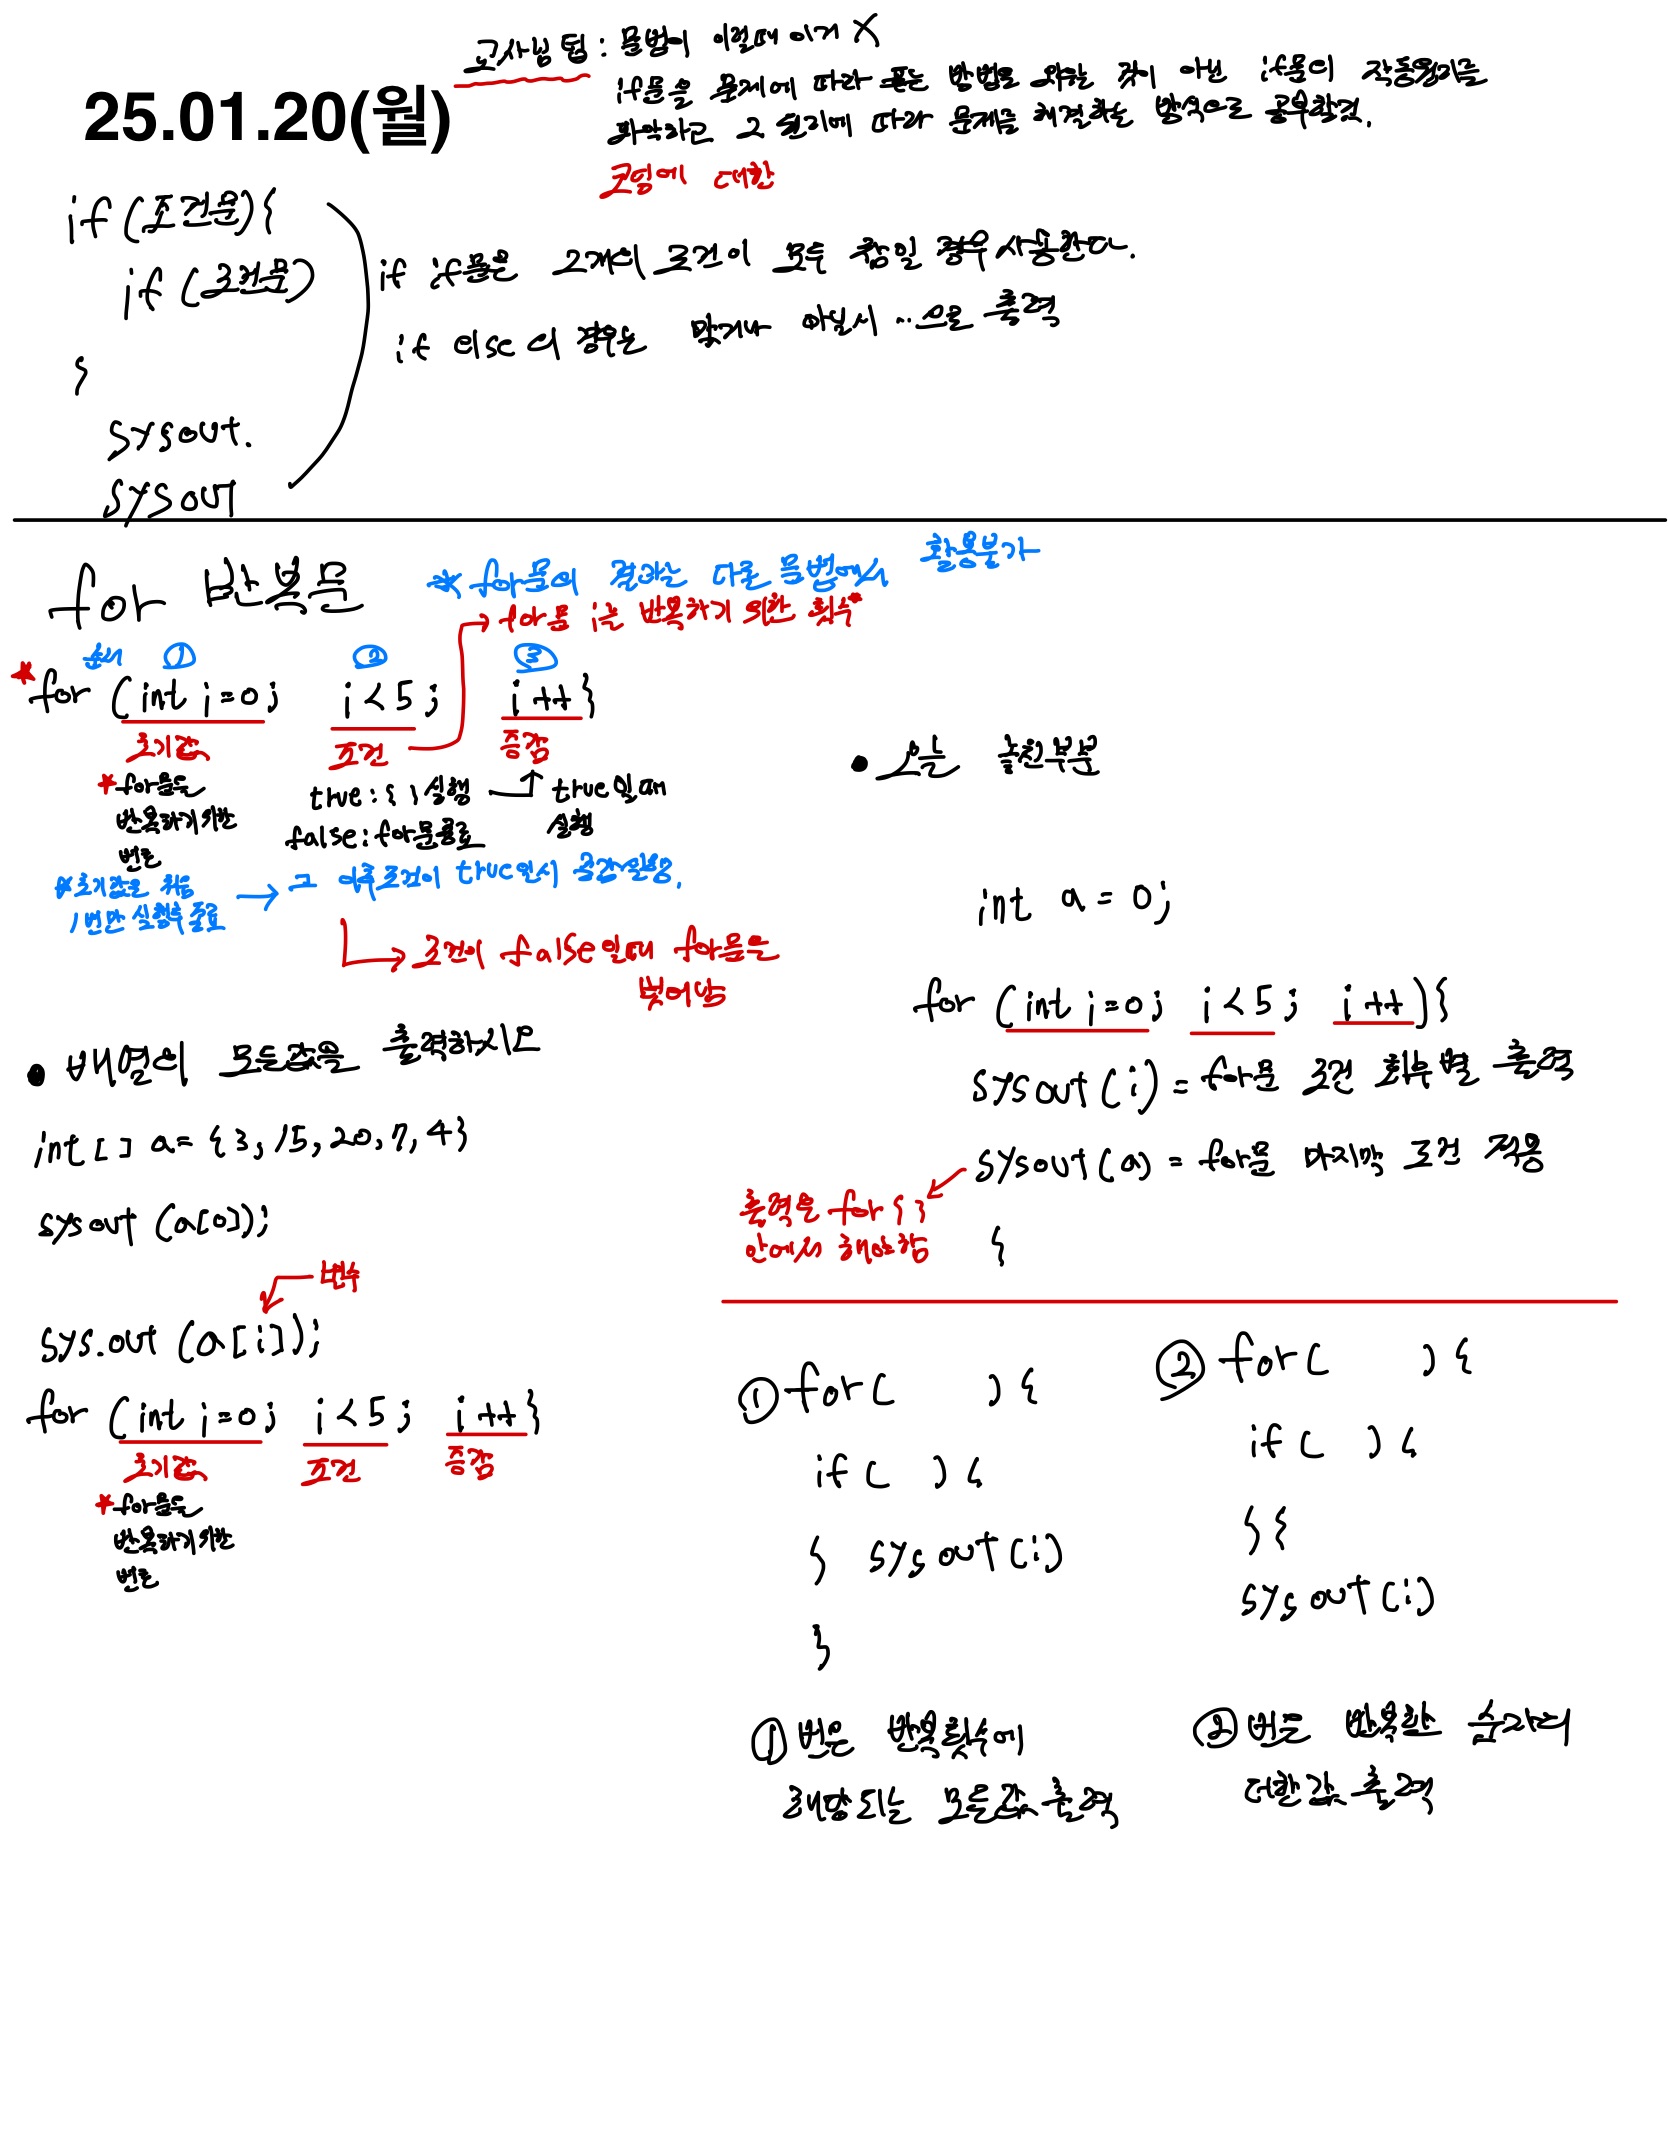 25.01.20(월)
교사님 팁 : 문법이 이럴때 이거 X
if문을 문제에 따라 푸는 방법으로 외우는 것이 아닌 if문의 작동원리를
파악하고 그 원리에 따라 문제를 해결하는 방식으로 공부할것.
코딩에 대한
if (조건문) {
if (조건문)
}
sysout.
sysout
if if문은 2개의 조건이 모두 참일 경우 사용한다.
if else의 경우는 맞거나 아닐시 ...으로 출력
for 반복문
* for문의 결과는 다른 문법에서 활용불가
→ for문 i는 반복하기 위한 횟수*
순서 ① ② ③
* for (int i=0; i<5; i++}
초기값 조건 증감
* for문을
반복하기위한
변수
true : { } 실행
false : for문종료
true일때
실행
* 초기값은 처음
1번만 실행후 종료
→ 그 이후조건이 true일시 증감실행.
→ 조건이 false일때 for문을
벗어남
• 배열의 모든값을 출력하시오
int[] a= {3, 15, 20, 7, 4}
sysout (a[0]);
변수
sys.out (a[i]);
for (int i=0; i<5; i++}
초기값 조건 증감
* for문을
반복하기위한
변수
• 오늘 놓친부분
int a = 0;
for (int i=0; i<5; i++){
sysout(i) = for문 조건 회수별 출력
sysout(a) = for문 마지막 조건 적용
출력은 for { }
안에서 해야함
{
① for( ) {
if( ) {
} sysout(i)
}
② for( ) {
if( ) {
} {
sysout(i)
① 번은 반복횟수에
해당되는 모든값 출력
② 번은 반복한 숫자의
대한값 출력